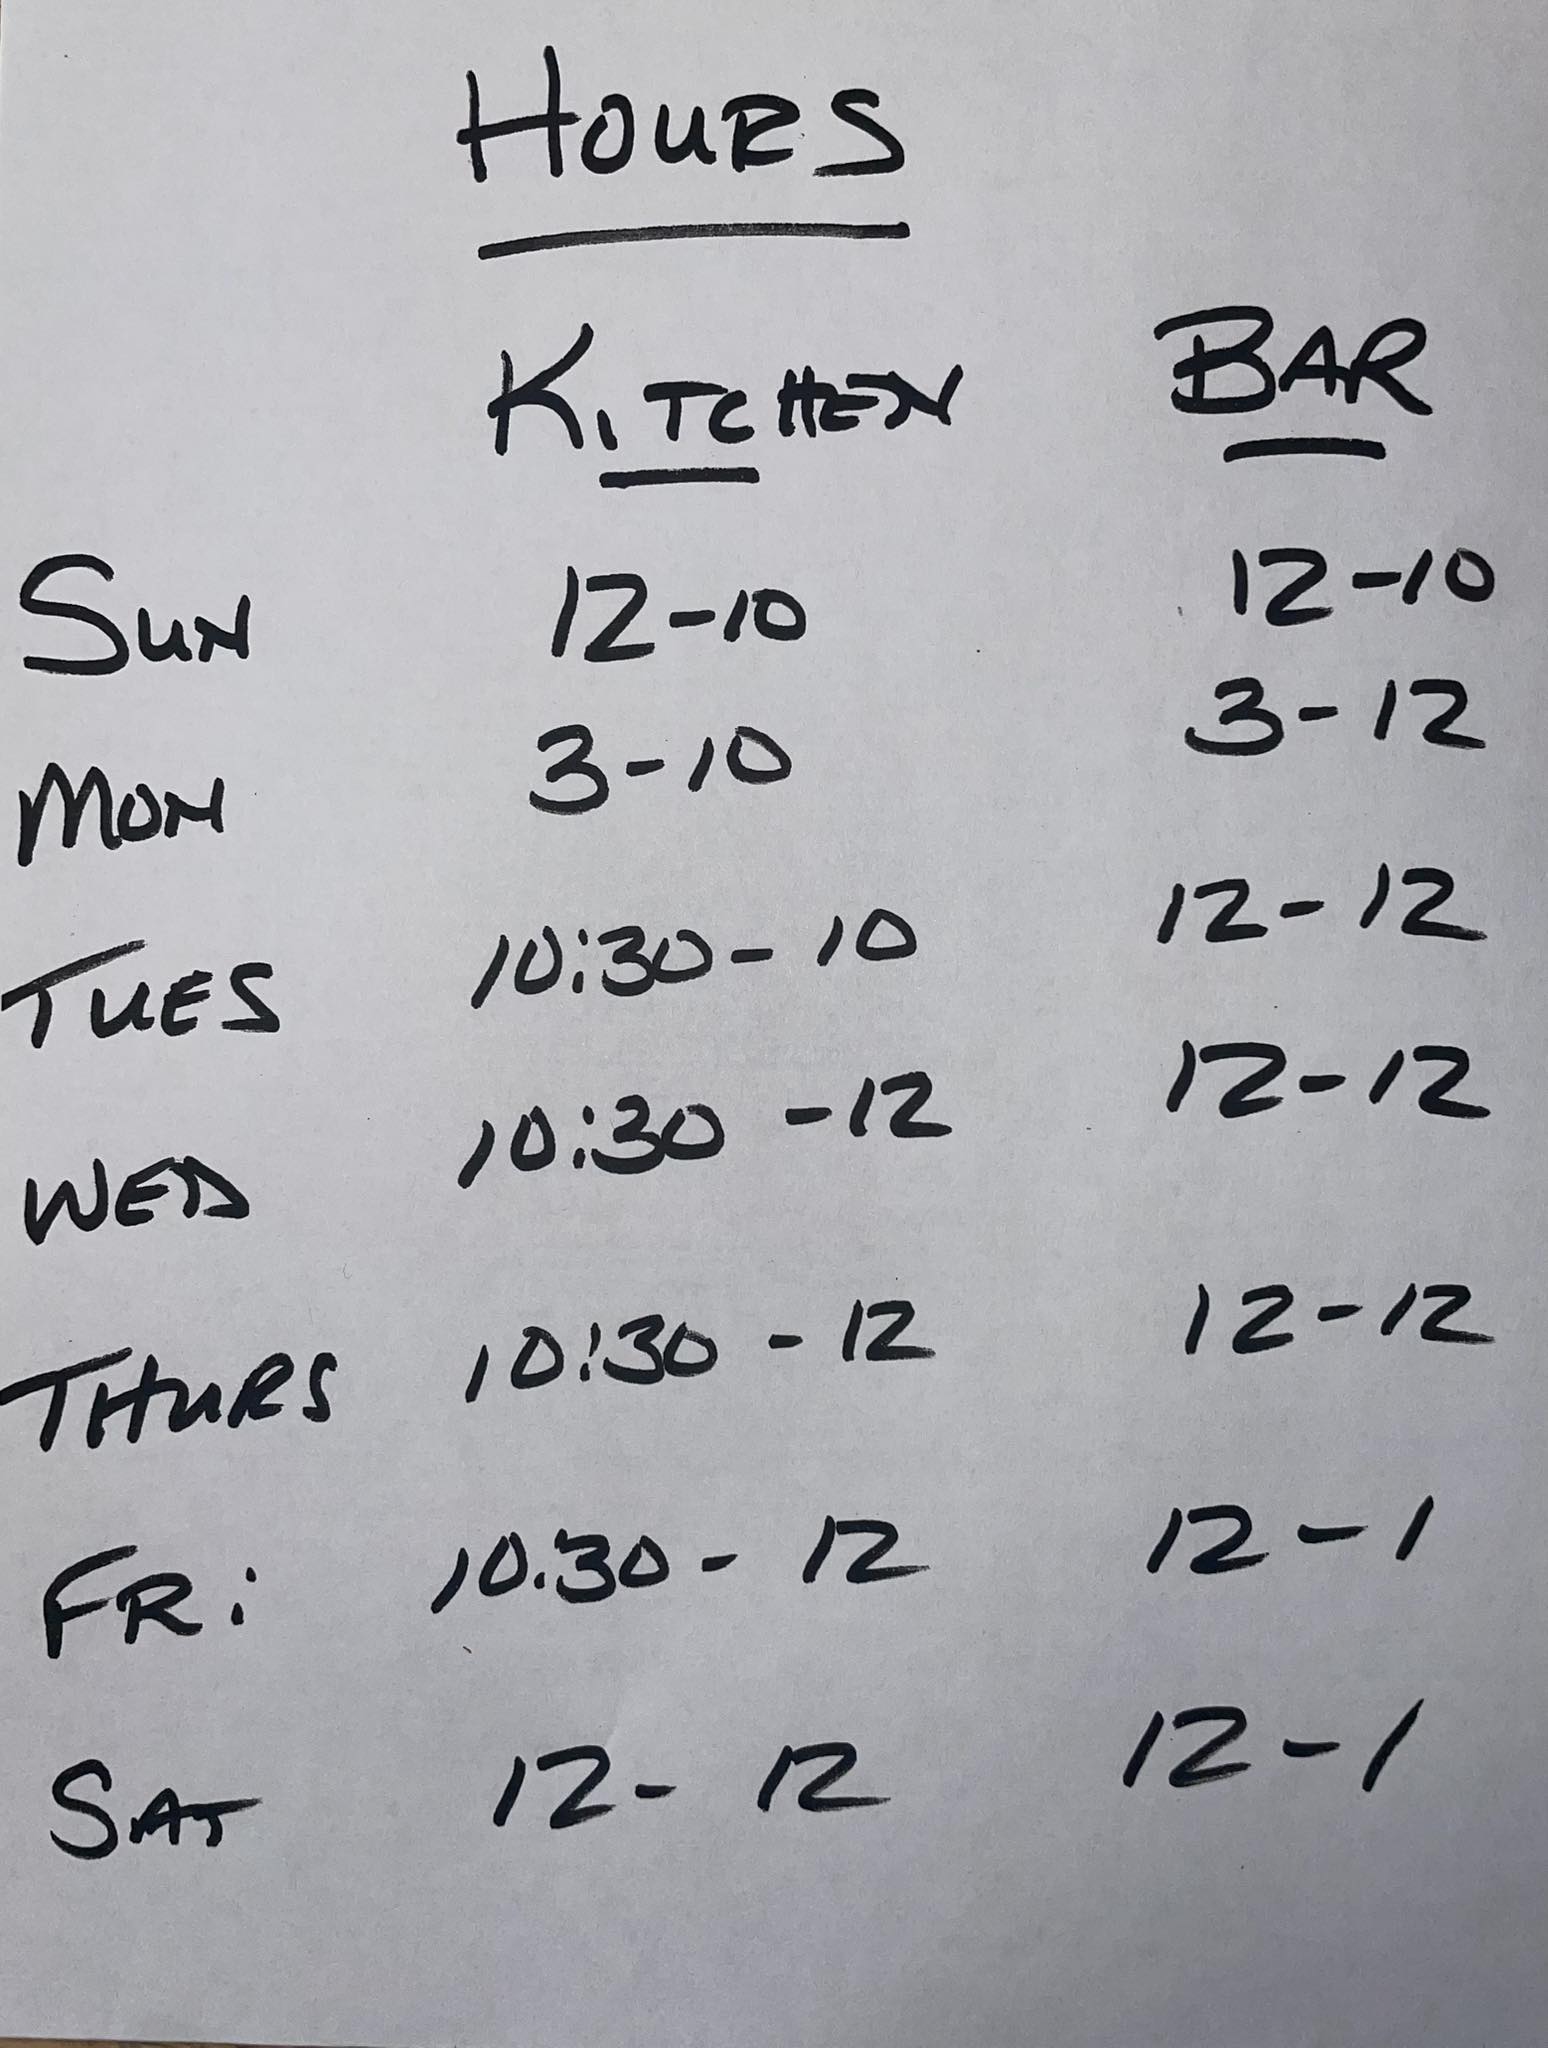 HOURS
KITCHEN BAR
SUN 12-10 12-10
MON 3-10 3-12
TUES 10:30-10 12-12
WED 10:30-12 12-12
THURS 10:30-12 12-12
FRi 10:30-12 12-1
SAT 12-12 12-1